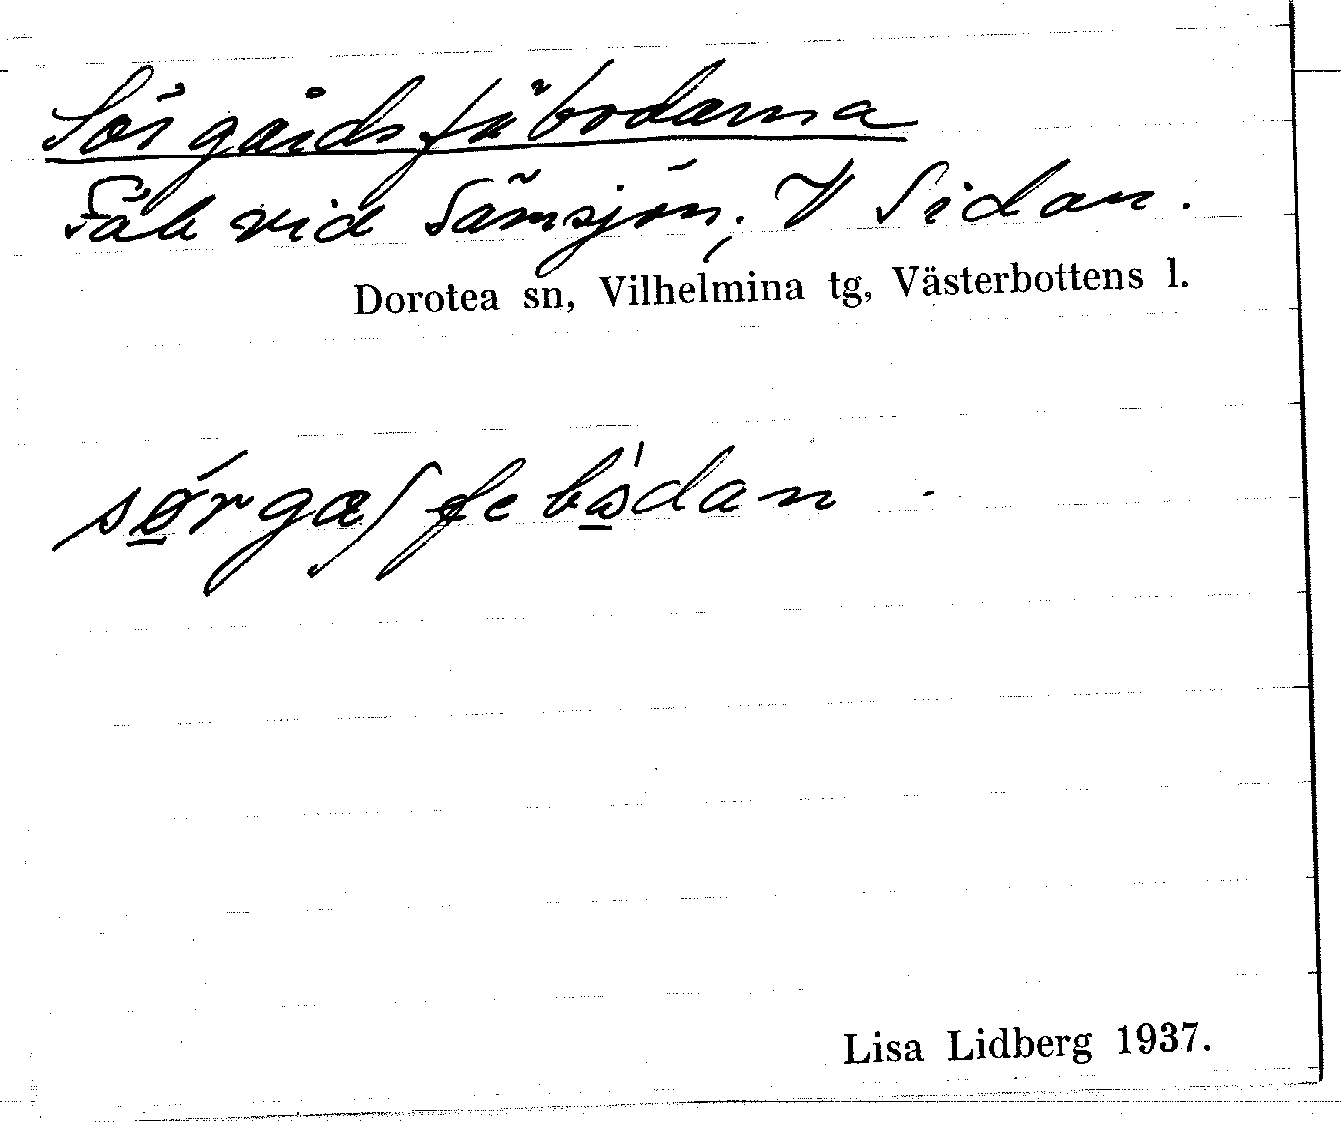 Sörgårdsfäbodarna
Fäb vid Sämsjön, V Sidan.
Dorotea sn, Vilhelmina tg, Västerbottens l.
sørgaʃfebådan
Lisa Lidberg 1937.